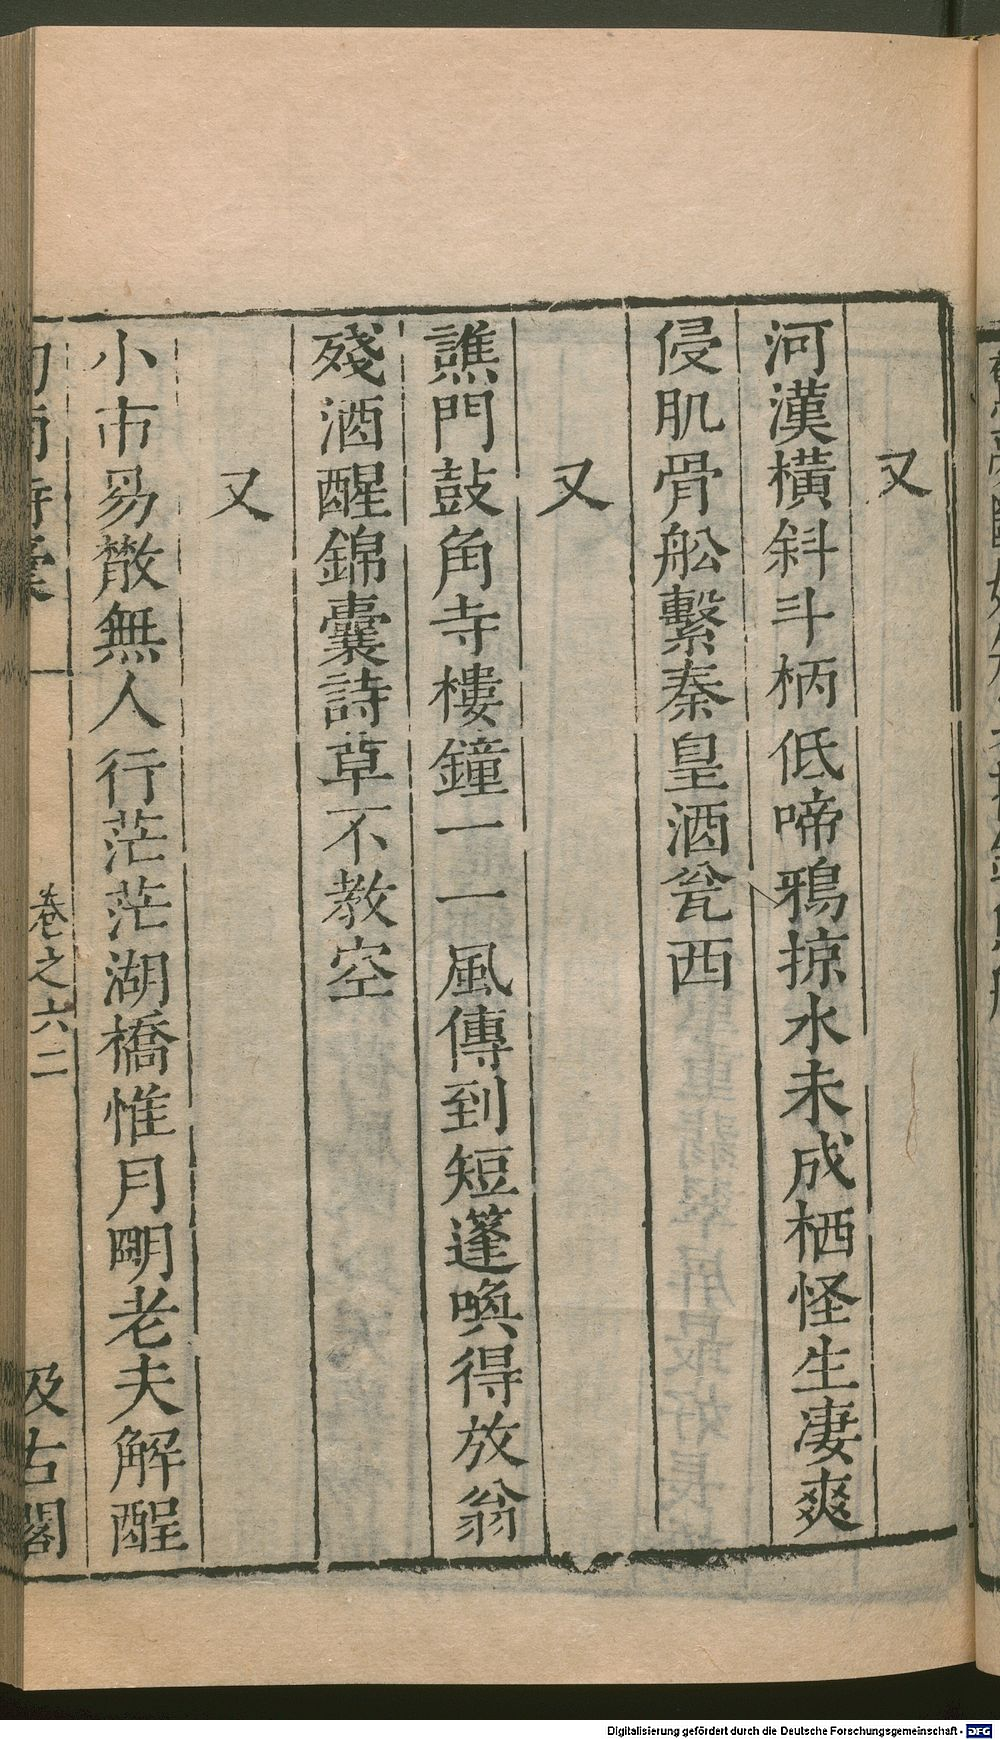 又
河漢橫斜斗柄低啼鴉掠水未成栖怪生凄爽
侵肌骨舩繫秦皇酒瓮西
又
譙門鼓角寺樓鐘一一風傳到短蓬喚得放翁
殘酒醒錦囊詩草不教空
又
小市易散無人行茫茫湖橋惟月明老夫解酲
卷之六二
汲古閣
Digitalisierung gefördert durch die Deutsche Forschungsgemeinschaft - DFG